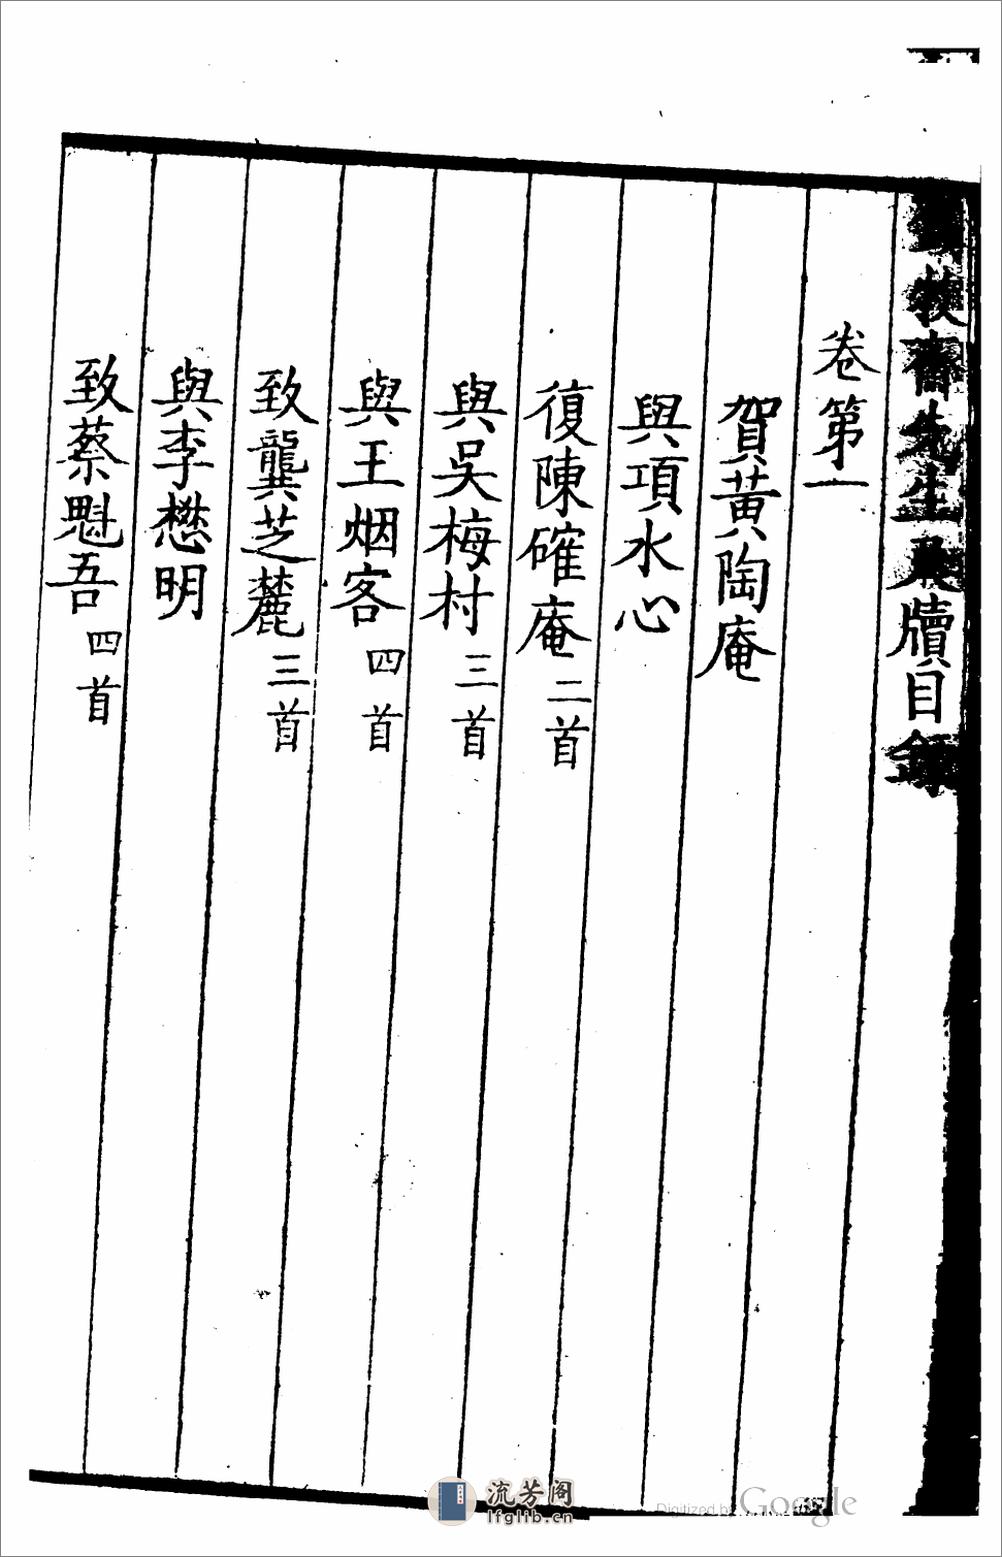 牧齋先生尺牘目錄
卷第一
賀黃陶庵
與項水心
復陳確庵 二首
與吳梅村 三首
與王烟客 四首
致龔芝麓 三首
與李懋明
致蔡魁吾 四首
流芳阁
lfglib.cn
Digitized by Google